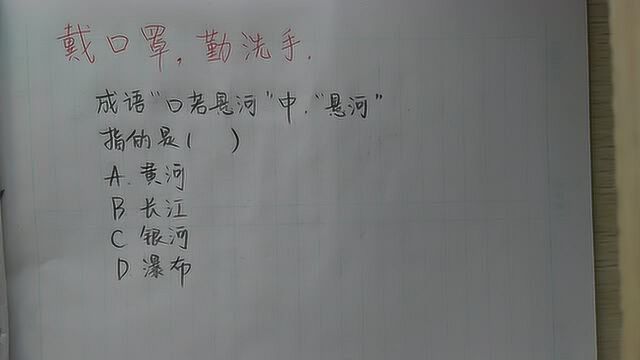 戴口罩,勤洗手.
成语"口若悬河"中,"悬河"
指的是( )
A.黄河
B 长江
C 银河
D.瀑布